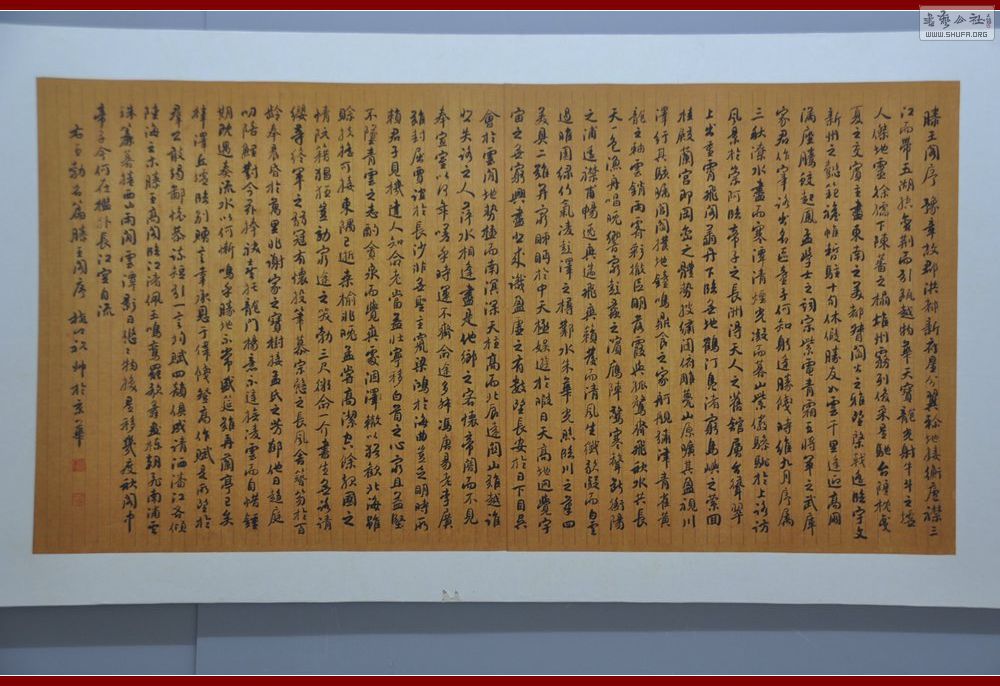 滕王閣序 豫章故郡洪都新府星分翼軫地接衡廬襟三
江而帶五湖控蠻荊而引甌越物華天寶龍光射牛斗之墟
人傑地靈徐孺下陳蕃之榻雄州霧列俊采星馳台隍枕夷
夏之交賓主盡東南之美都督閻公之雅望棨戟遙臨宇文
新州之懿範襜帷暫駐十旬休假勝友如雲千里逢迎高朋
滿座騰蛟起鳳孟學士之詞宗紫電青霜王將軍之武庫
家君作宰路出名區童子何知躬逢勝餞時維九月序屬
三秋潦水盡而寒潭清煙光凝而暮山紫儼驂騑於上路訪
風景於崇阿臨帝子之長洲得天人之舊館層台聳翠
上出重霄飛閣翔丹下臨無地鶴汀鳧渚窮島嶼之縈回
桂殿蘭宮即岡巒之體勢披繡闥俯雕甍山原曠其盈視川
澤紆其駭矚閭閻撲地鐘鳴鼎食之家舸艦彌津青雀黃
龍之舳雲銷雨霽彩徹區明落霞與孤鶩齊飛秋水共長
天一色漁舟唱晚響窮彭蠡之濱雁陣驚寒聲斷衡陽
之浦遙襟甫暢逸興遄飛爽籟發而清風生纖歌凝而白雲
遏睢園綠竹氣凌彭澤之樽鄴水朱華光照臨川之筆四
美具二難并窮睇眄於中天極娛遊於暇日天高地迥覺宇
宙之無窮興盡悲來識盈虛之有數望長安於日下目吳
會於雲間地勢極而南溟深天柱高而北辰遠關山難越誰
悲失路之人萍水相逢盡是他鄉之客懷帝閽而不見
奉宣室以何年嗟乎時運不齊命途多舛馮唐易老李廣
難封屈賈誼於長沙非無聖主竄梁鴻於海曲豈乏明時所
賴君子見機達人知命老當益壯寧移白首之心窮且益堅
不墜青雲之志酌貪泉而覺爽處涸澤轍以猶歡北海雖
賒扶搖可接東隅已逝桑榆非晚孟嘗高潔空餘報國之
情阮籍猖狂豈效窮途之哭勃三尺微命一介書生無路請
纓等終軍之弱冠有懷投筆慕宗慤之長風舍簪笏於百
齡奉晨昏於萬里非謝家之寶樹接孟氏之芳鄰他日趨庭
叨陪鯉對今茲捧袂喜托龍門楊意不逢撫凌雲而自惜鍾
期既遇奏流水以何慚嗚乎勝地不常盛筵難再蘭亭已矣
梓澤丘墟臨別贈言幸承恩于偉餞登高作賦是所望於
群公敢竭鄙懷恭疏短引一言均賦四韻俱成請灑潘江各傾
陸海云尔滕王高閣臨江渚佩玉鳴鸞罷歌舞畫棟朝飛南浦雲
珠簾暮捲西山雨閒雲潭影日悠悠物換星移幾度秋閣中
帝子今何在檻外長江空自流
右王勃名篇滕王閣序
於京華
書藝公社
WWW.SHUFA.ORG